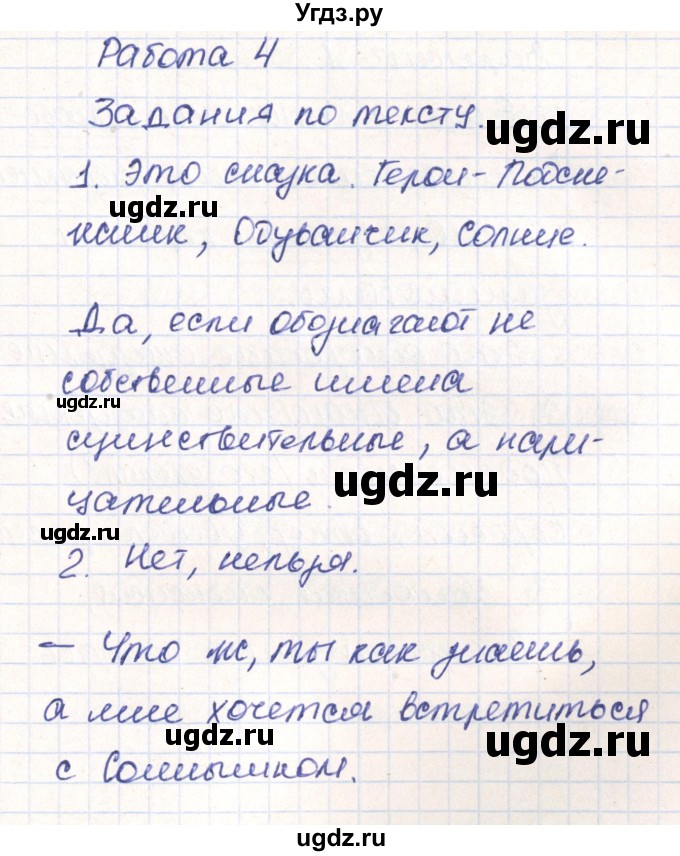 Угдз.ру
Работа 4
Задания по тексту.
ugdz.ru
1. Это сказка. Герои - Подсне-
ugdz.ru
жник, Одуванчик, Солнце.
Да, если обозначают не
собственные имена
ugdz.ru
существительные, а нари-
ugdz.ru
цательные.
ugdz.ru
2. Нет, нельзя.
- Что ж, ты как знаешь,
а мне хочется встретиться
ugdz.ru
ugdz.ru
с Солнышком.
ugdz.ru